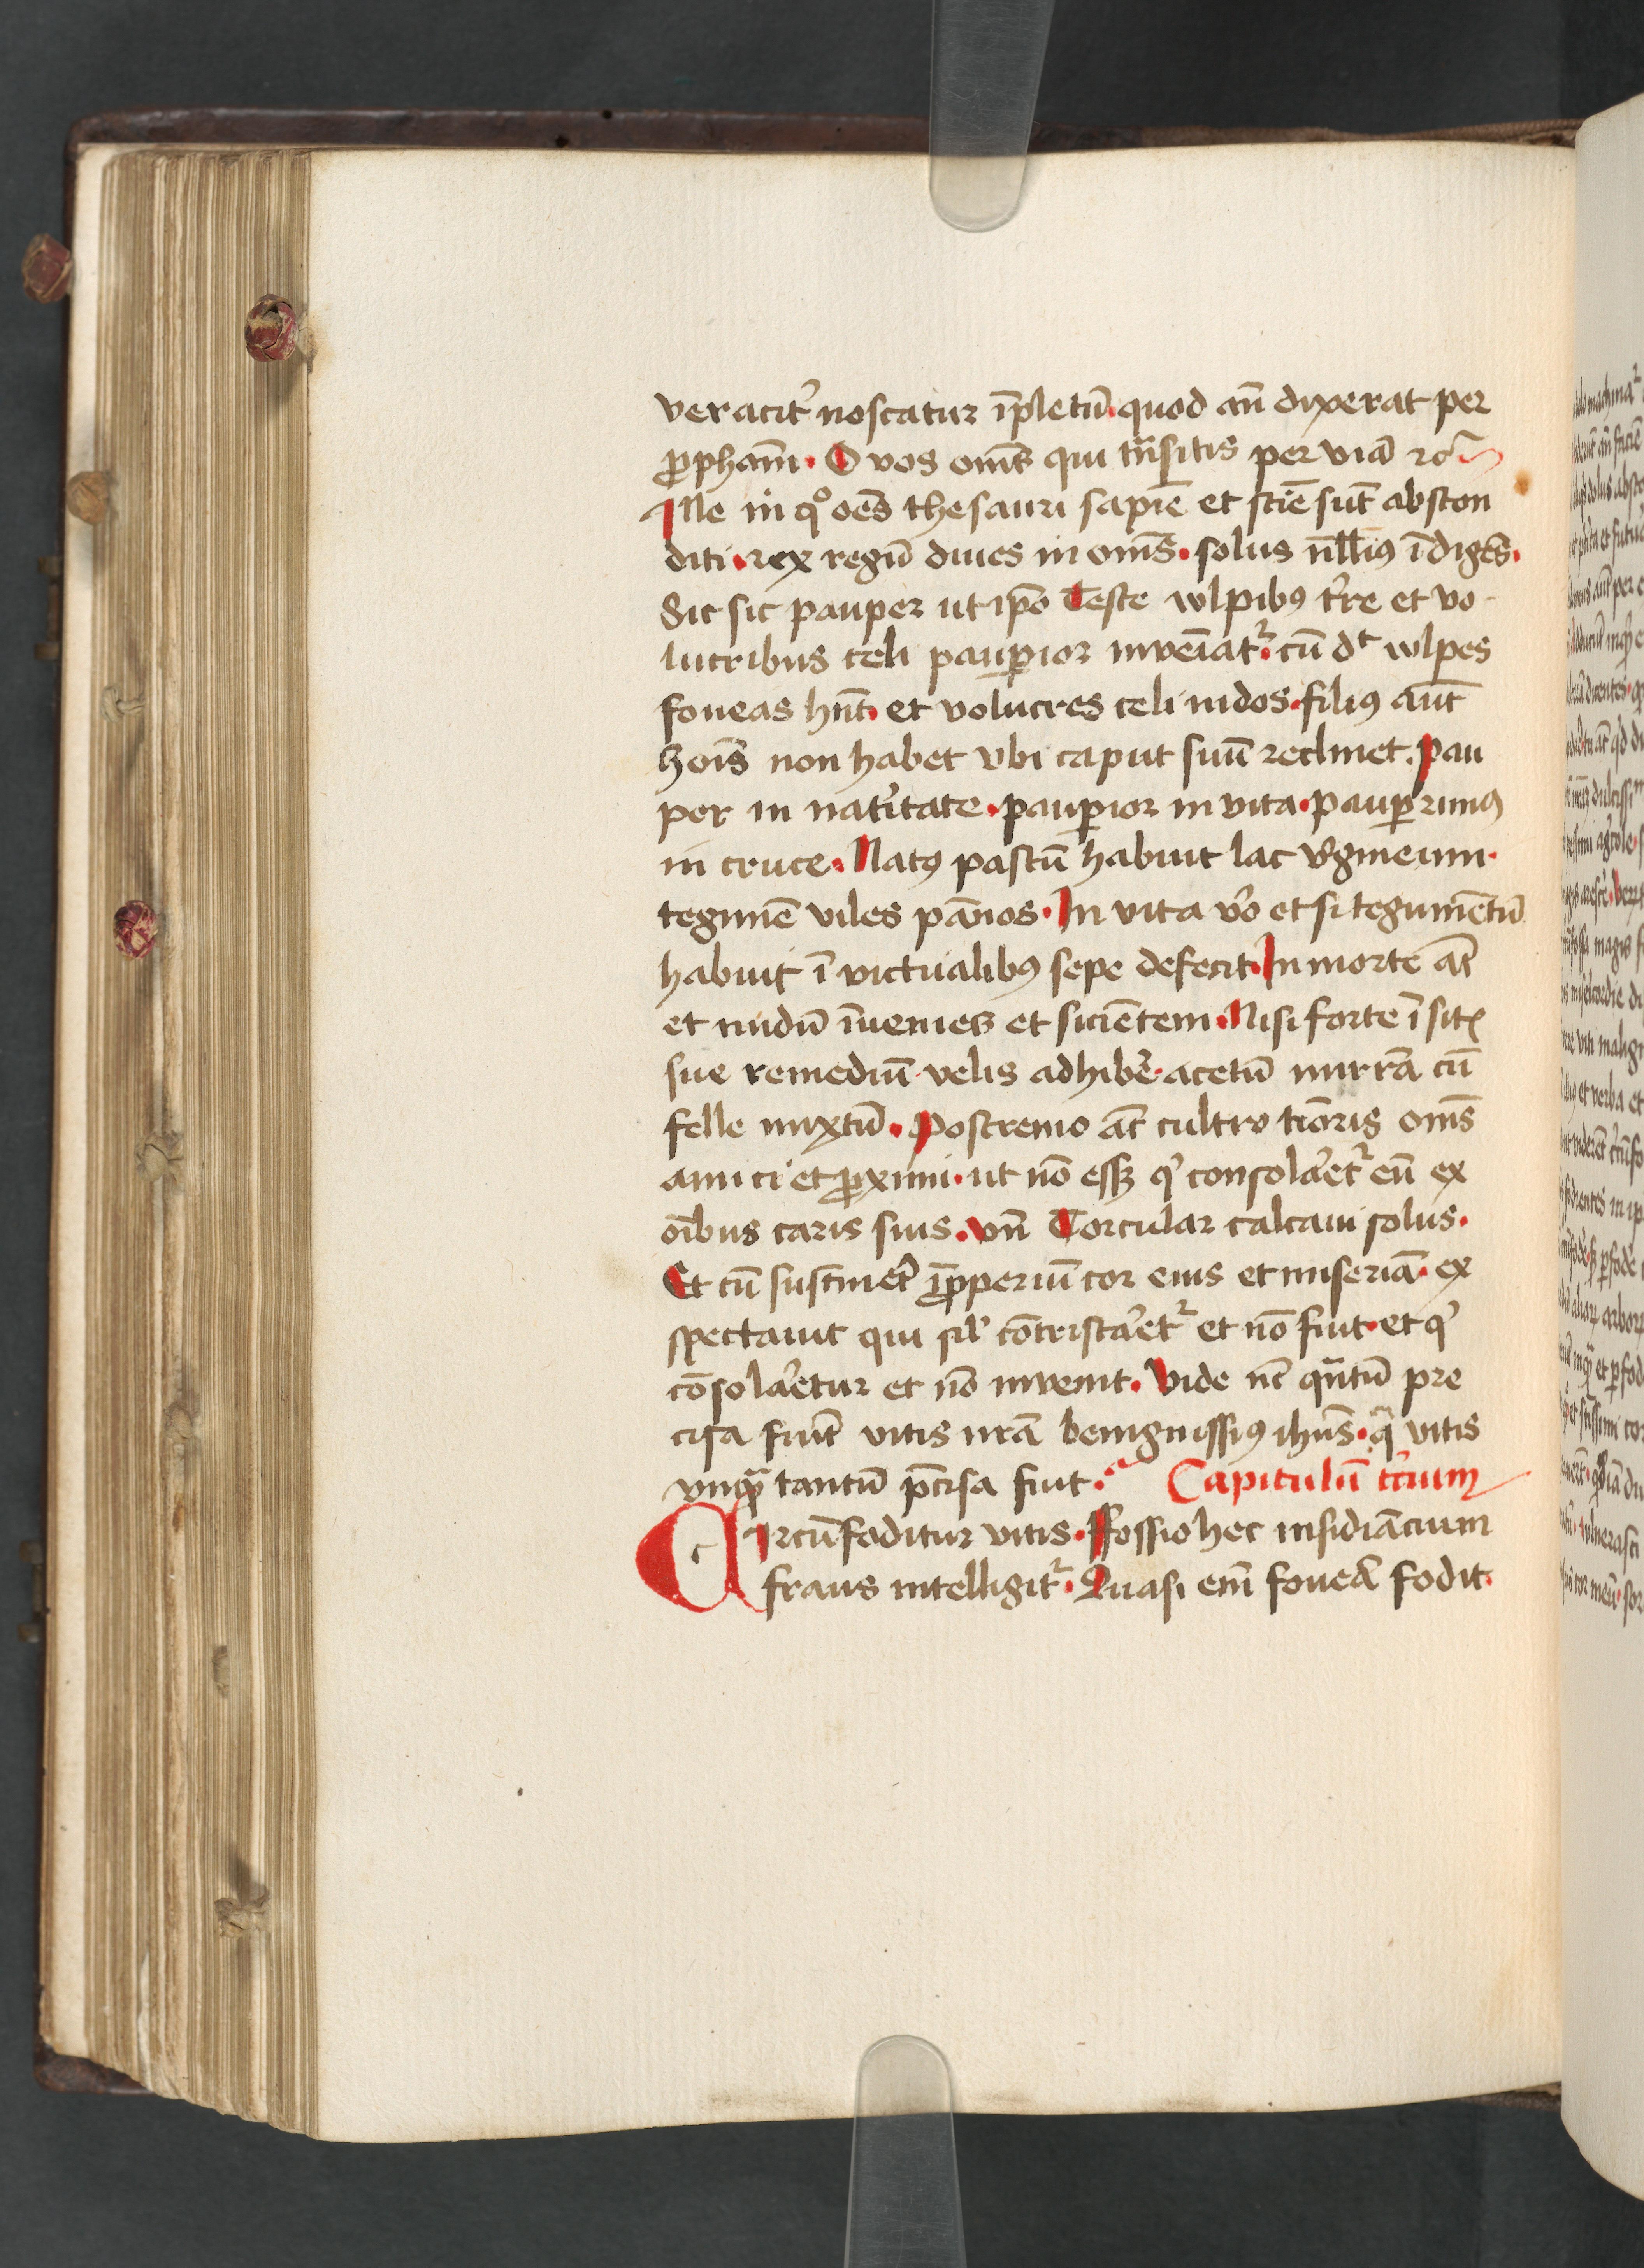 veracit᷑ noscatur īpletū. quod an̄ dixerat per
ꝓpham̄. O vos om̄s qui tn̄sitis per viā ⁊c̄
Ille in qͦ oēs thesauri sapiē et sciē sūt abscon
diti. rex regū diues in om̄s. solus nll̄iꝰ īdigēs.
Sit sic pauper ut ip̄o Teste wlpibꝰ t᷑re et vo
lucribus celi pauꝑior inveniat᷑. cū dt wlpes
foueas hn̄t. et volucres celi nidos. filiꝰ aūt
hoīs non habet vbi caput suū reclinet. Pau
per in nat᷑itate. pauꝑior in vita. pauꝑrimꝰ
in cruce. Natꝰ pastū habuit lac v᷑gineum.
tegimē viles pānos. In vita v᷑o et si tegumētū
habuit ī victualibꝰ sepe defecit. In morte at̄
et nudū īuenies et sicientem. Nisi forte ī sitꝭ
sue remediū velis adhibe᷑. acetū mirrā cū
felle mixtū. Postremo at̄ cultro tīoris om̄s
amici et ꝓximi. ut nō essꝫ q᷑ consola᷑et᷑ eū ex
oībus caris suis. vn̄ Torcular calcaui solus.
Et cū sustinet᷑ īꝓperiū cor eius et miseriā. ex
spectauit qui sil᷑ cōtrista᷑et᷑ et nō fuit. et q᷑
cōsola᷑etur et nō invenit. Vide nc̄ qn̄tū pre
cisa fuit vitis nrā benignissiꝰ ihūs. q̄ vitis
vnqꝫ tantū p̄cisa fuit. Capitulū t᷑cium
Circūfoditur vitis. Fossio hec insidiācium
fraus intelligit᷑. Quasi eni̅ foueā fodit.